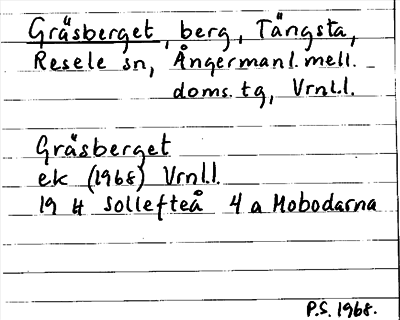 Gräsberget, berg, Tängsta,
Resele sn, Ångermanl. mell.
doms. tg, Vrnl.l.
Gräsberget
ek (1968) Vrnl.l.
19 H Sollefteå 4 a Mobodarna
P.S. 1968.